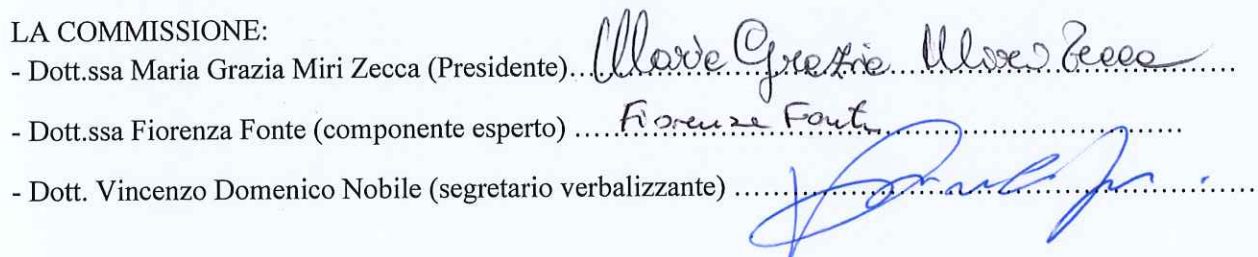 LA COMMISSIONE:
- Dott.ssa Maria Grazia Miri Zecca (Presidente)..Maria Grazia Miri Zecca.....
- Dott.ssa Fiorenza Fonte (componente esperto) ....Fiorenza Fonte.....
- Dott. Vincenzo Domenico Nobile (segretario verbalizzante) ......